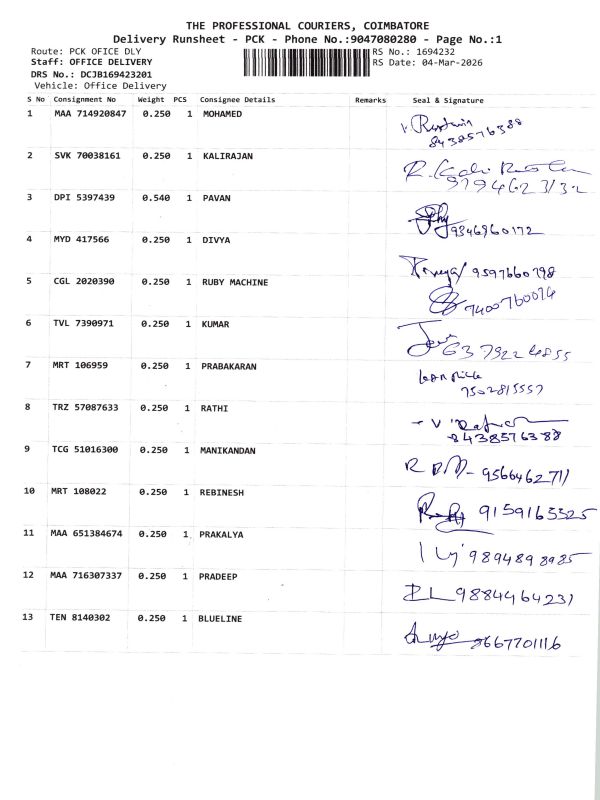 THE PROFESSIONAL COURIERS, COIMBATORE
Delivery Runsheet - PCK - Phone No.:9047080280 - Page No.:1
Route: PCK OFICE DLY RS No.: 1694232
Staff: OFFICE DELIVERY RS Date: 04-Mar-2026
DRS No.: DCJB169423201
Vehicle: Office Delivery
S No Consignment No Weight PCS Consignee Details Remarks Seal & Signature
1 MAA 714920847 0.250 1 MOHAMED
8438576388
2 SVK 70038161 0.250 1 KALIRAJAN
3 DPI 5397439 0.540 1 PAVAN
9346960172
4 MYD 417566 0.250 1 DIVYA
9597660798
5 CGL 2020390 0.250 1 RUBY MACHINE
7400760074
6 TVL 7390971 0.250 1 KUMAR
7 MRT 106959 0.250 1 PRABAKARAN
7502815557
8 TRZ 57087633 0.250 1 RATHI
8438576388
9 TCG 51016300 0.250 1 MANIKANDAN
9566462711
10 MRT 108022 0.250 1 REBINESH
9159165325
11 MAA 651384674 0.250 1 PRAKALYA
9894898985
12 MAA 716307337 0.250 1 PRADEEP
9884464231
13 TEN 8140302 0.250 1 BLUELINE
8667701116